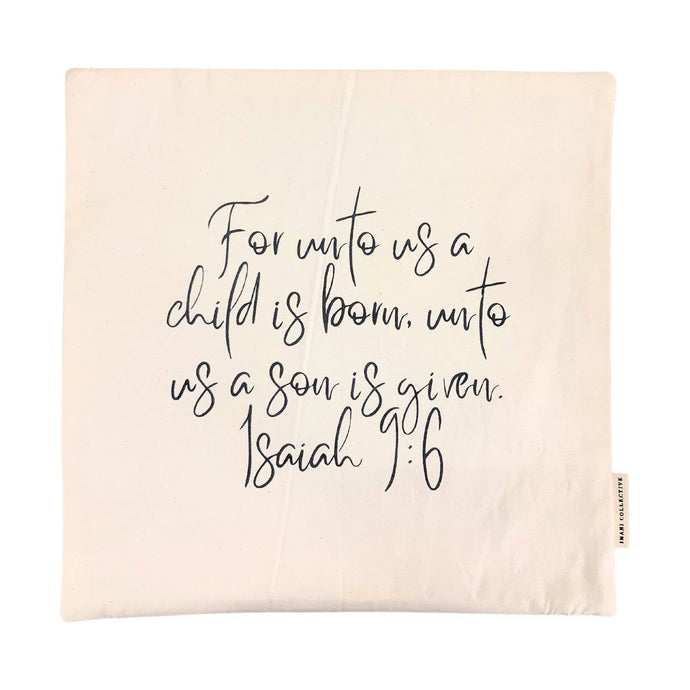 For unto us a
child is born, unto
us a son is given.
Isaiah 9:6
IMANI COLLECTIVE